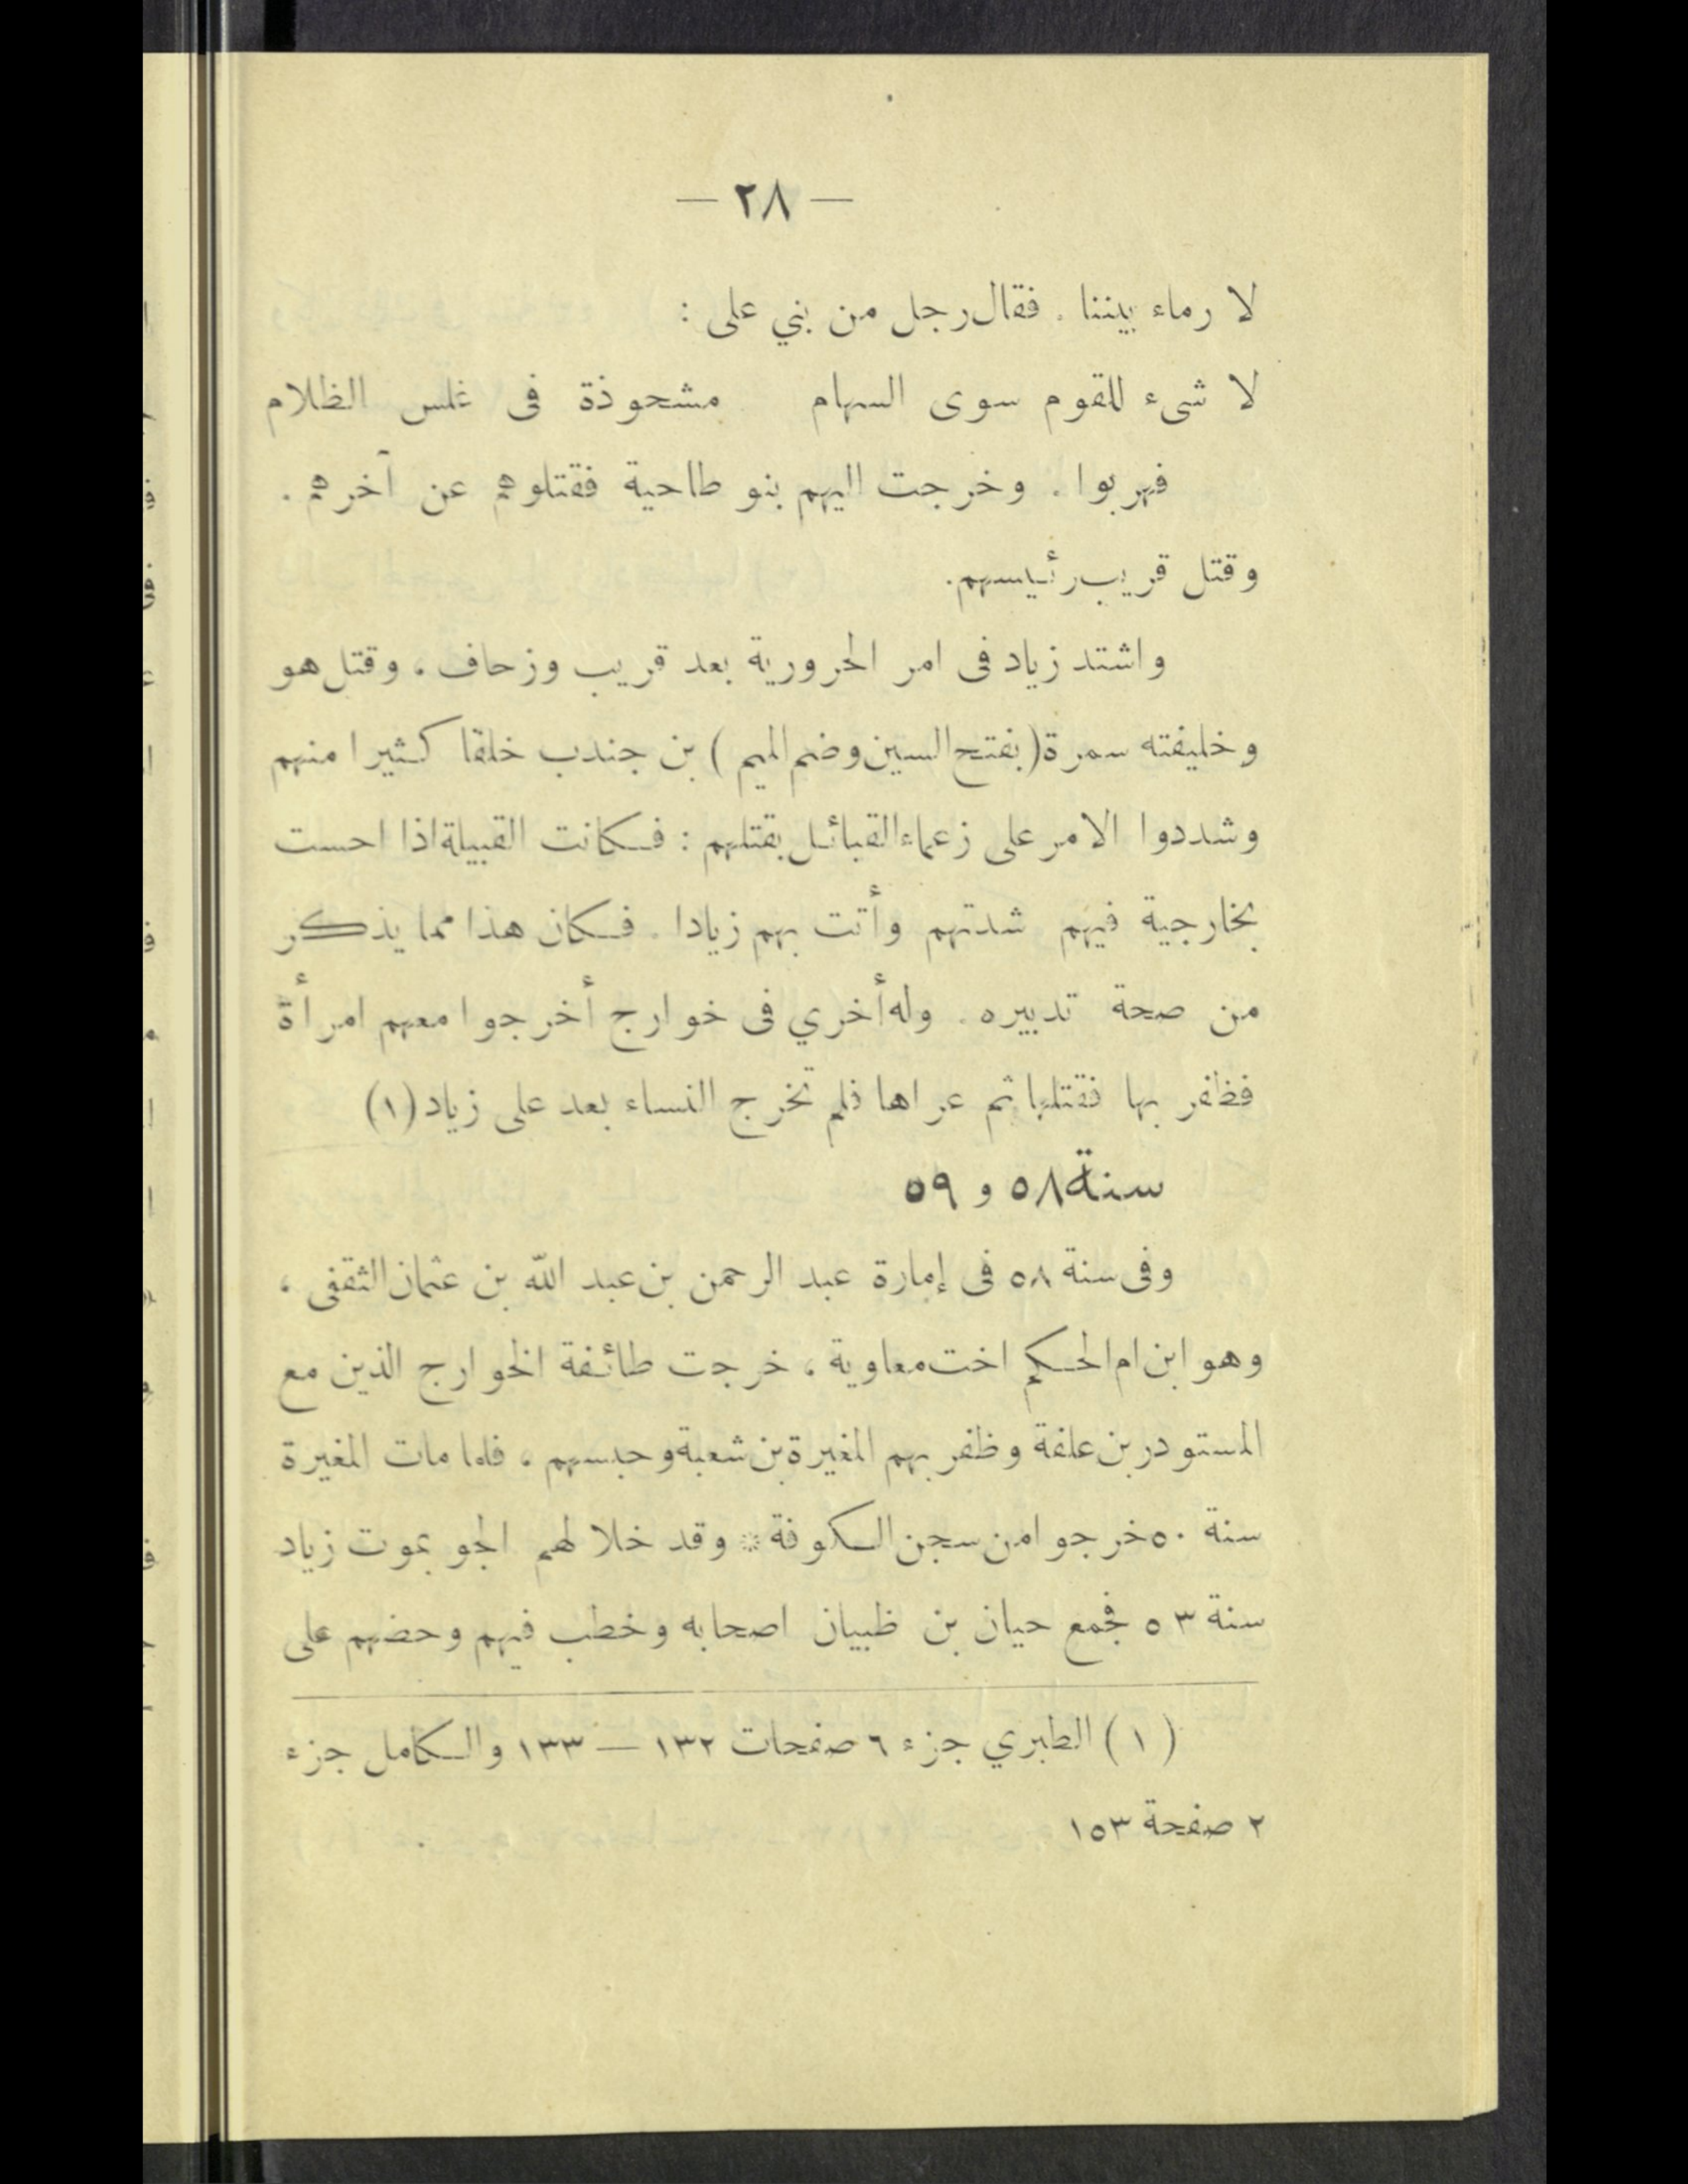 — ٢٨ —
لا رماء بيننا . فقال رجل من بني على :
لا شىء للقوم سوى السهام مشحوذة فى غلس الظلام
فهربوا . وخرجت اليهم بنو طاحية فقتلوهم عن آخرهم .
وقتل قريب رئيسهم.
واشتد زياد فى امر الحرورية بعد قريب وزحاف ، وقتل هو
وخليفته سمرة (بفتح السين وضم الميم ) بن جندب خلقا كثيرا منهم
وشددوا الامر على زعماء القبائل بقتلهم : فكانت القبيلة اذا احست
بخارجية فيهم شدتهم وأتت بهم زيادا . فكان هذا مما يذكر
من صحة تدبيره . وله أخري فى خوارج أخرجوا معهم امرأة
فظفر بها فقتلها ثم عراها فلم تخرج النساء بعد على زياد (١)
سنة ٥٨ و ٥٩
وفى سنة ٥٨ فى إمارة عبد الرحمن بن عبد الله بن عثمان الثقفى ،
وهو ابن ام الحكم اخت معاوية ، خرجت طائفة الخوارج الذين مع
المستودر بن علفة وظفر بهم المغيرة بن شعبة وحبسهم ، فلما مات المغيرة
سنة ٥٠ خرجوا من سجن الكوفة * وقد خلا لهم الجو بموت زياد
سنة ٥٣ فجمع حيان بن ظبيان اصحابه وخطب فيهم وحضهم على
(١) الطبري جزء ٦ صفحات ١٣٢ — ١٣٣ والكامل جزء
٢ صفحة ١٥٣